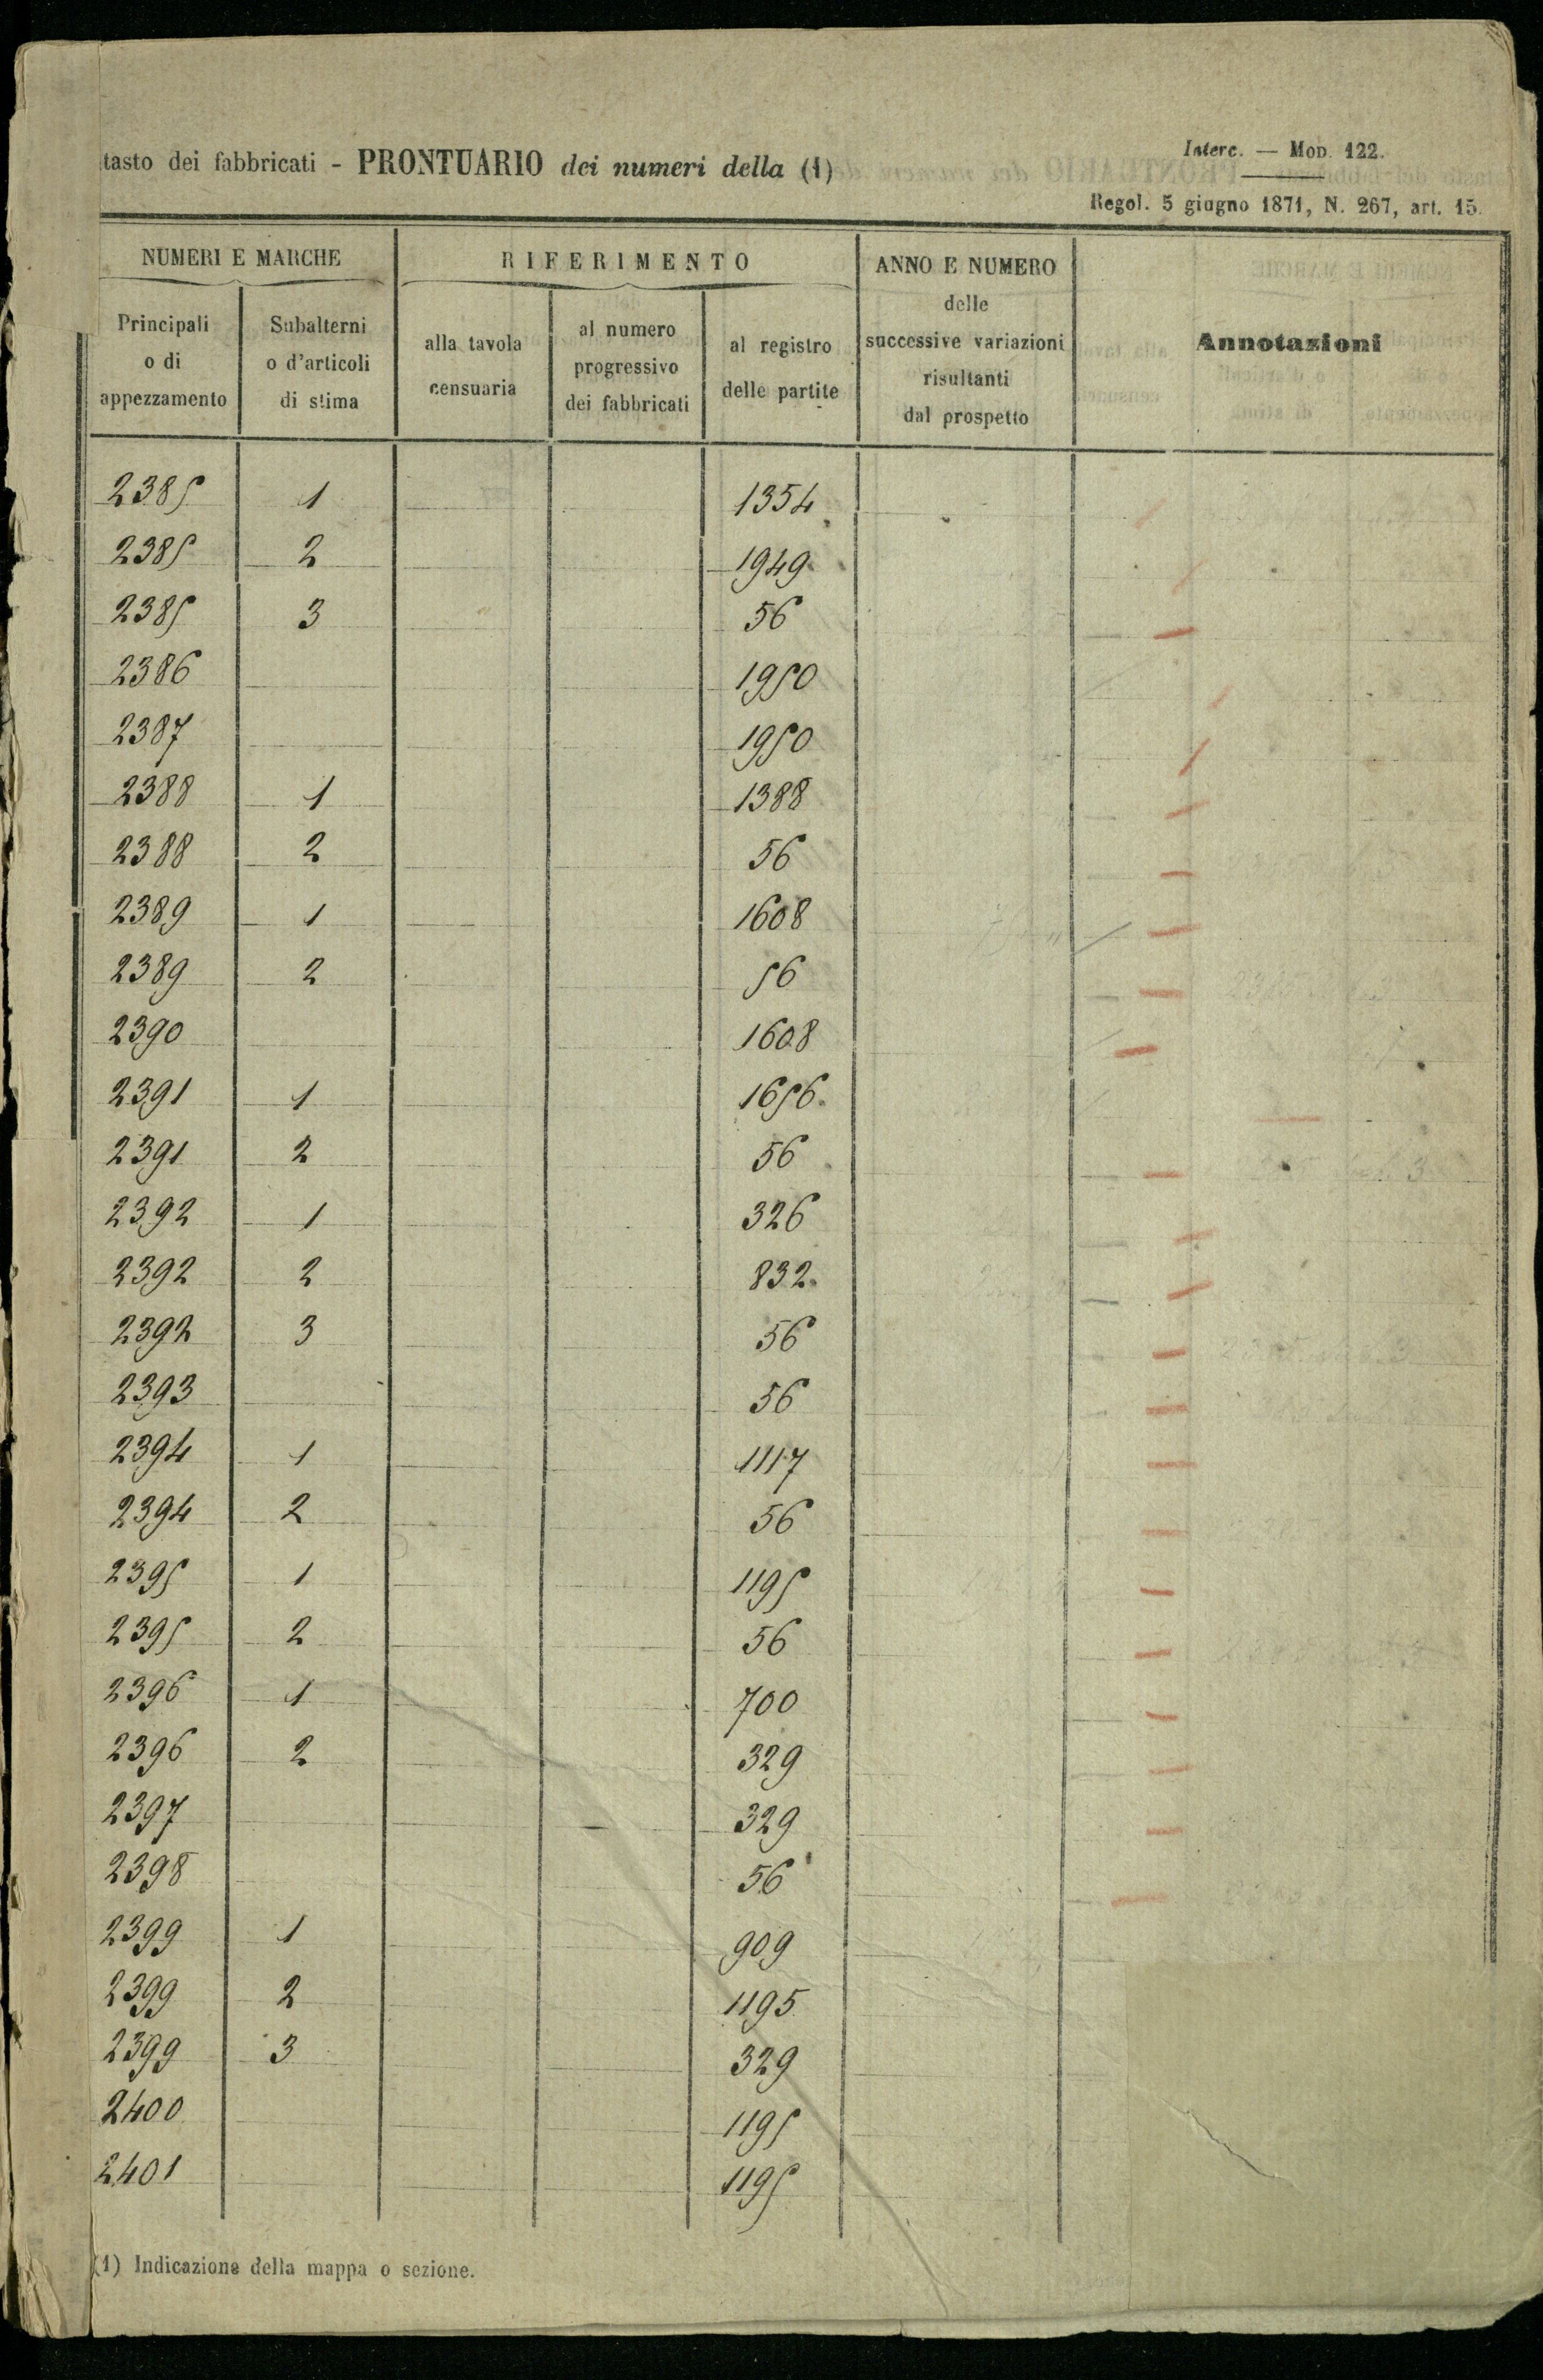 tasto dei fabbricati - PRONTUARIO dei numeri della (1)
Interc. — Mod. 122.
Regol. 5 giugno 1871, N. 267, art. 15.
NUMERI E MARCHE
RIFERIMENTO
ANNO E NUMERO
delle
successive variazioni
risultanti
dal prospetto
Annotazioni
Principali
o di
appezzamento
Subalterni
o d'articoli
di stima
alla tavola
censuaria
al numero
progressivo
dei fabbricati
al registro
delle partite
2385 1 1354
2385 2 1949
2385 3 56
2386 1950
2387 1950
2388 1 1388
2388 2 56
2389 1 1608
2389 2 56
2390 1608
2391 1 1656
2391 2 56
2392 1 326
2392 2 832
2392 3 56
2393 56
2394 1 1117
2394 2 56
2395 1 1195
2395 2 56
2396 1 700
2396 2 329
2397 329
2398 56
2399 1 909
2399 2 1195
2399 3 329
2400 1195
2401 1195
(1) Indicazione della mappa o sezione.